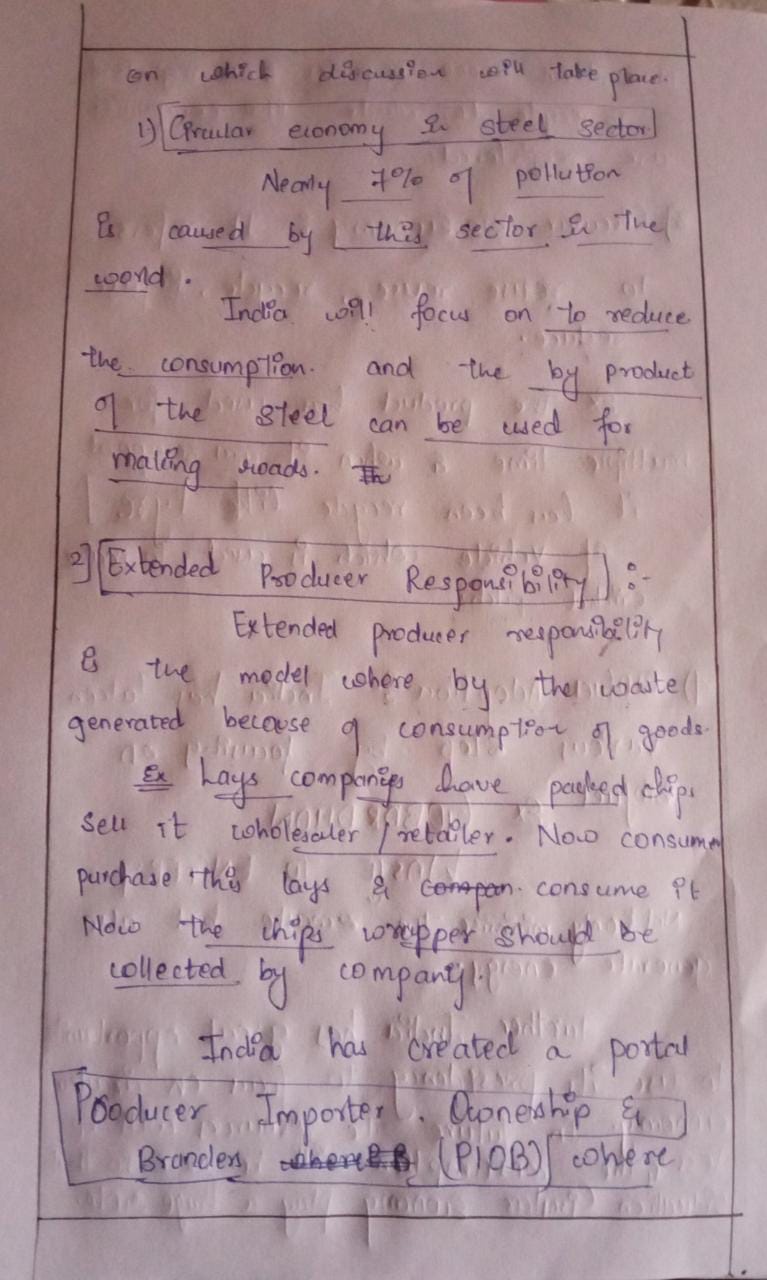 on which discussion will take place.
1) Circular economy in steel sector
Nearly 7% of pollution
is caused by this sector in the
world.
India will focus on to reduce
the consumption. and the by product
of the steel can be used for
making roads. Th
2] Extended Producer Responsibility :-
Extended producer responsibility
is the model where by the waste
generated because of consumption of goods.
Ex Lays companies have packed chips
sell it wholesaler / retailer. Now consumer
purchase this lays & compan. consume it
Now the chips wrapper should be
collected by company.
India has created a portal
Producer Importer. Ownership &
Branders where (PIOB) where